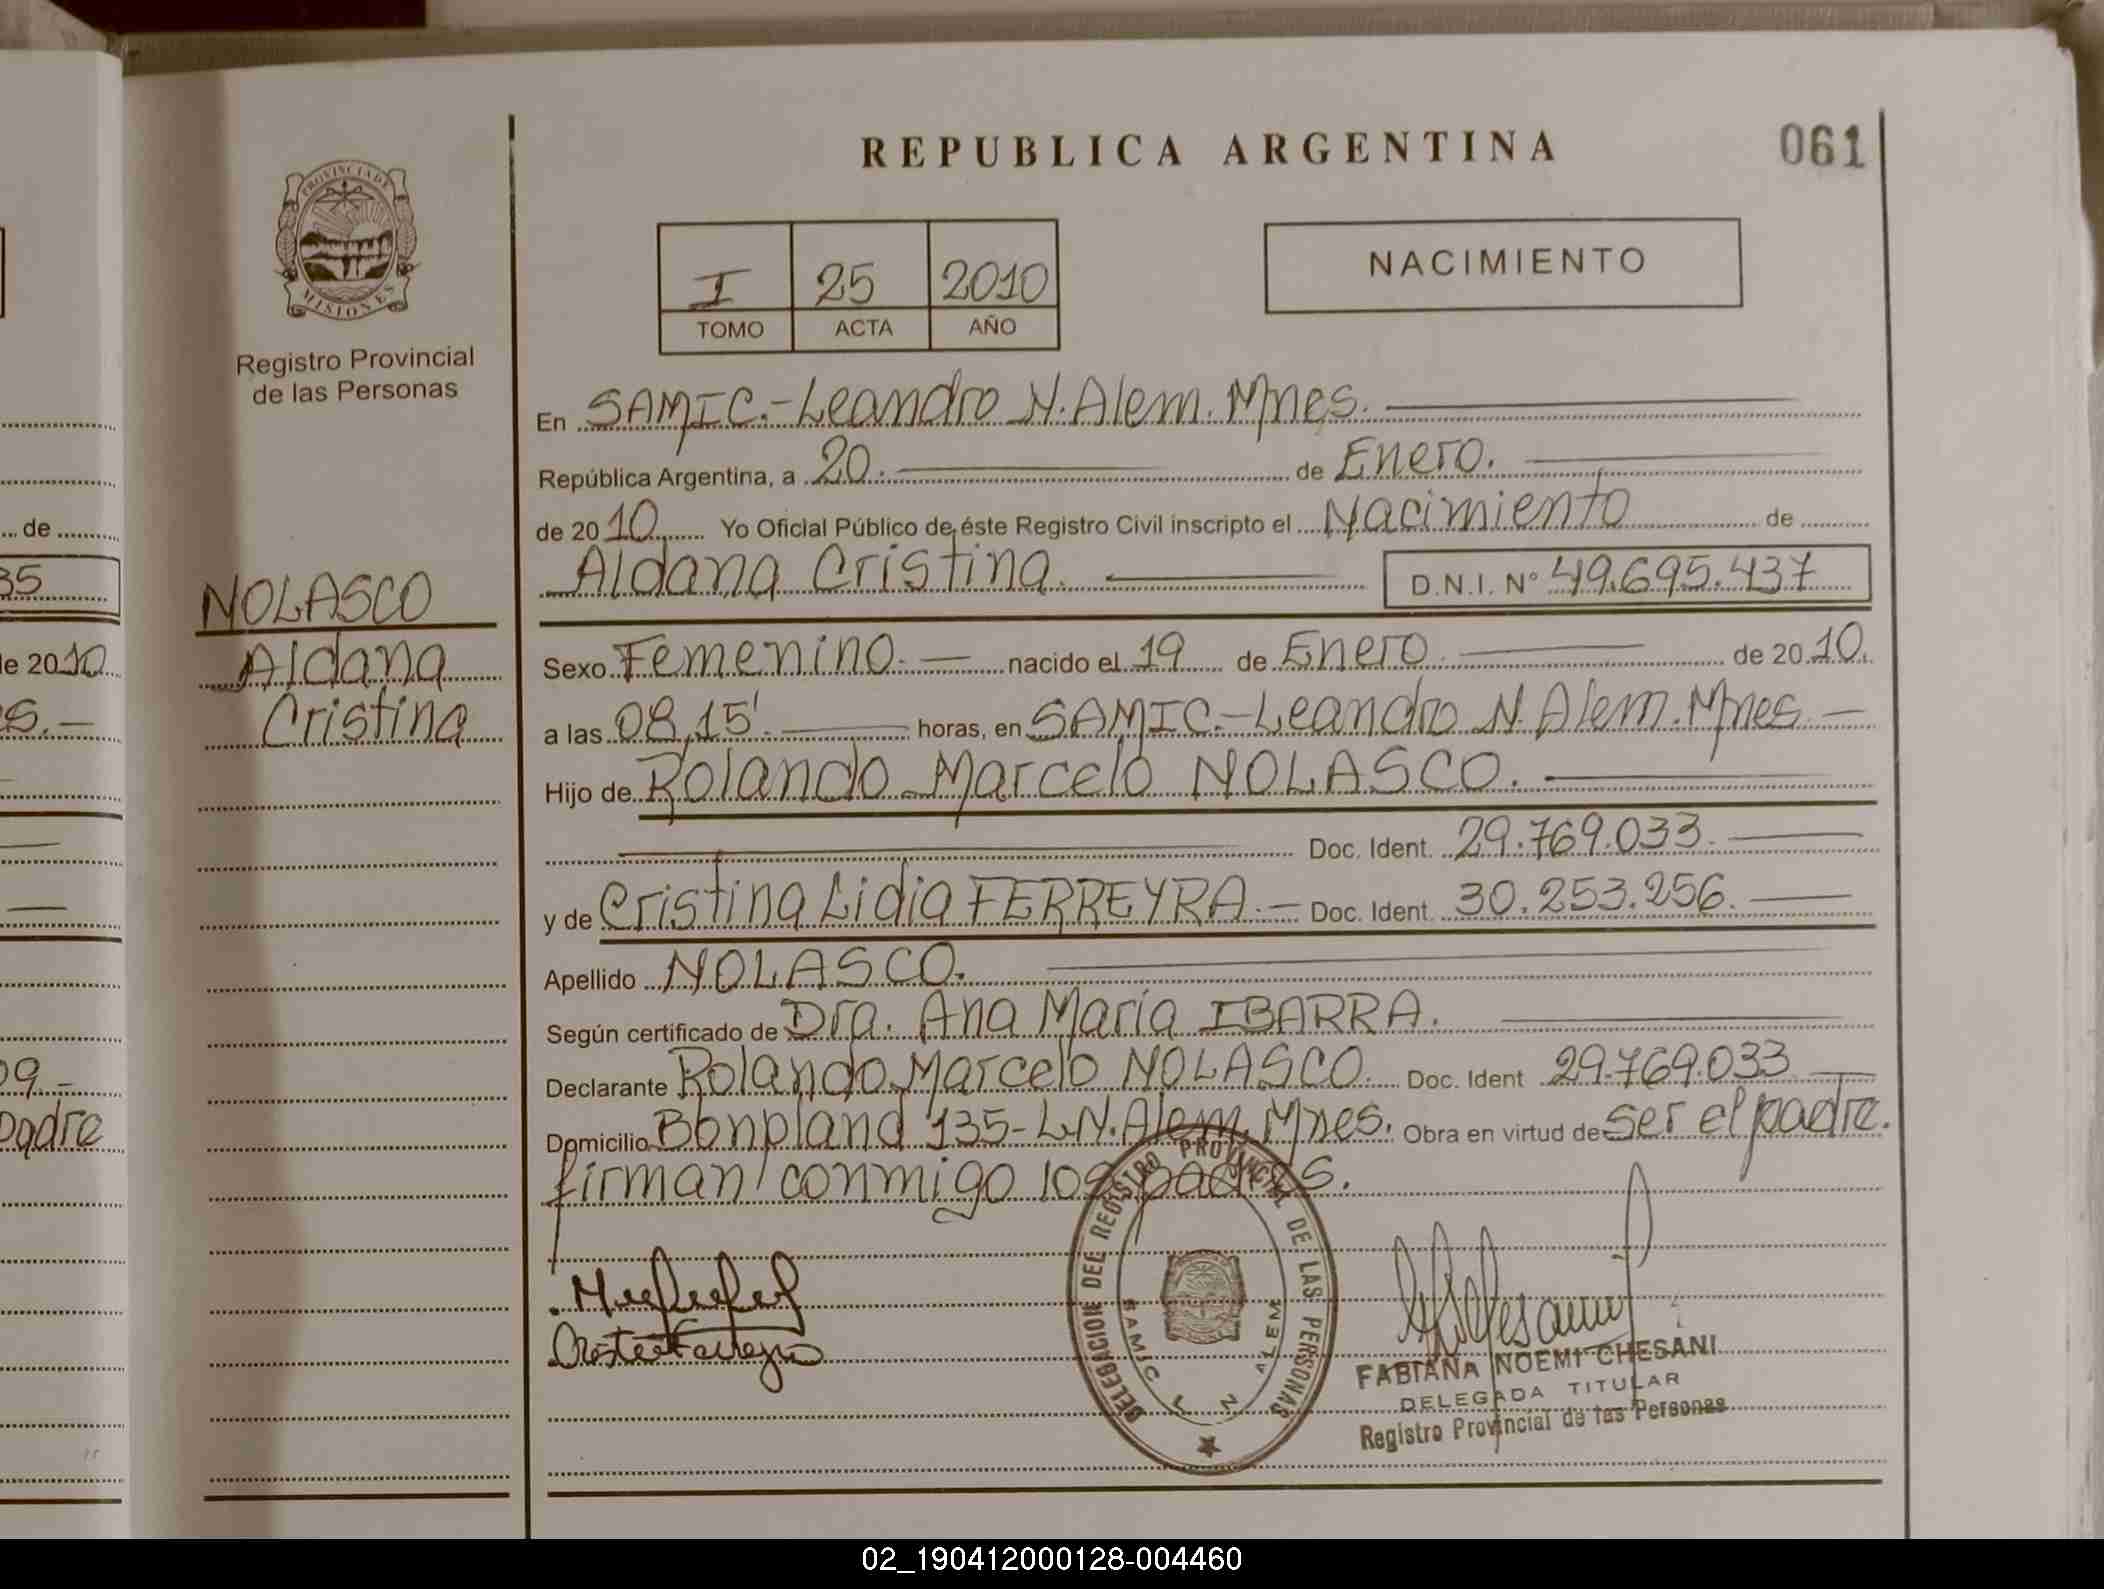 REPUBLICA ARGENTINA
061
PROVINCIA DE
MISIONES
Registro Provincial
de las Personas
I 25 2010
TOMO ACTA AÑO
NACIMIENTO
En SAMIC.-Leandro N. Alem. Mnes.
República Argentina, a 20. de Enero.
de 2010 Yo Oficial Público de éste Registro Civil inscripto el Nacimiento de
Aldana Cristina. D.N.I. N° 49.695.437
NOLASCO
Aldana
Cristina
Sexo Femenino.- nacido el 19 de Enero. de 2010.
a las 08,15'. horas, en SAMIC.-Leandro N. Alem. Mnes.-
Hijo de Rolando Marcelo NOLASCO.
Doc. Ident. 29.769.033.
y de Cristina Lidia FERREYRA.- Doc. Ident. 30.253.256.
Apellido NOLASCO.
Según certificado de Dra. Ana María IBARRA.
Declarante Rolando Marcelo NOLASCO. Doc. Ident 29.769.033
Domicilio Bonpland 135-L.N.Alem. Mnes. Obra en virtud de ser el padre.
firman conmigo los padres.
DELEGACION DEL REGISTRO PROVINCIAL DE LAS PERSONAS
SAMIC L N ALEM
FABIANA NOEMI CHESANI
DELEGADA TITULAR
Registro Provincial de las Personas
de
35
de 2010
es.-
09.-
padre
02_190412000128-004460